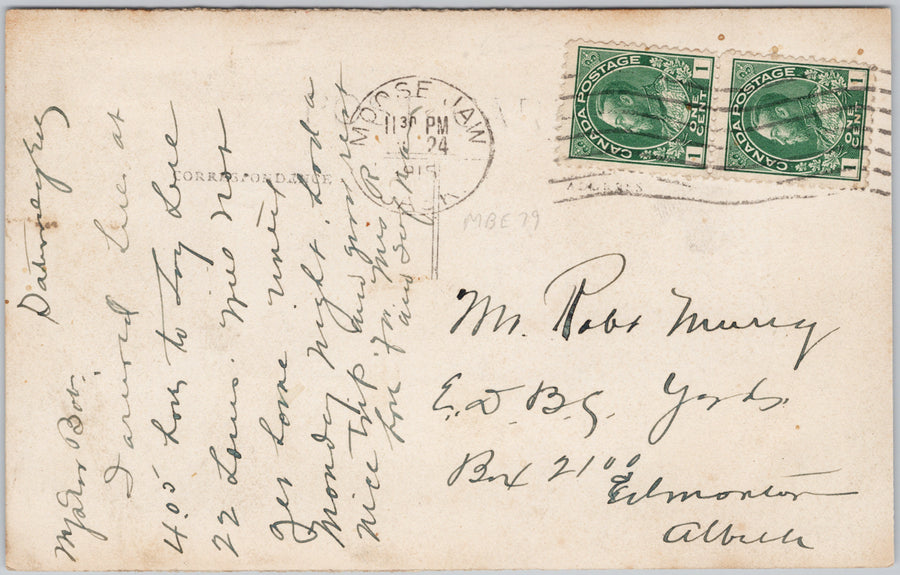 Saturday
My Dear Bob.
I arrived here at
4.05 have to lay here
22 hours. Will not
get home until
Monday night. had a
nice trip. and good rest
for Mr & Mrs R.
CORRESPONDANCE
MOOSE JAW
11 30 PM
24
SASK
MBE79
CANADA POSTAGE
1 ONE CENT 1
CANADA POSTAGE
1 ONE CENT 1
ADDRESS
Mr. Robt Murray
E. D. & B. C. Yards.
Box 2100
Edmonton
Alberta